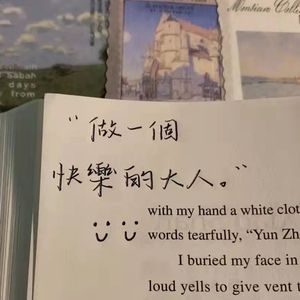 Sabah
days
from
“做一個
快樂的大人。”
with my hand a white clot
words tearfully, “Yun Zh
I buried my face in
loud yells to give vent t